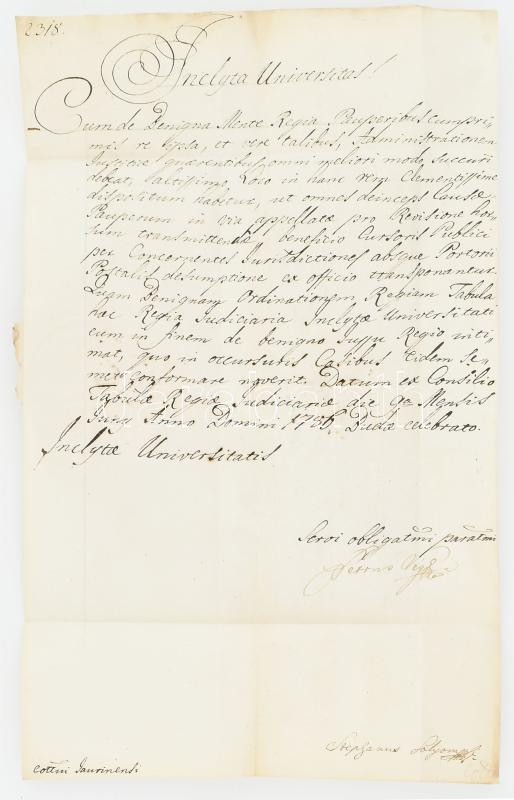 2318.
Inclyta Universitas!
Cum de Benigna Mente Regia Pauperibus cumpri-
mis re ipsa, et vere talibus, Administrationem
Justitiæ quærentibus omni meliori modo succuri
debeat, Altissimo Loco in hanc rem Clementissime
dispositum habetur, ut omnes deinceps Causæ
Pauperum in via appellatæ pro Revisione hor-
sum transmittendæ beneficio Cursoris Publici
per Concernentes Jurisdictiones absque Portorii
Postalis desumptione ex officio transponantur.
Quam Benignam Ordinationem, Regiam Tabula
hæc Regia Judiciaria Inclytæ Universitati
eum in finem de benigno jussu Regio inti-
mat, quo in occursuris Casibus eidem Se-
met conformare noverit. Datum ex Consilio
Tabulæ Regiæ Judiciariæ die 9a Mensis
Juny Anno Domini 1786. Budæ celebrato.
Inclytæ Universitatis
Servi obligatmi paratmi
Petrus
Stephanus
Cottui Jaurinensi